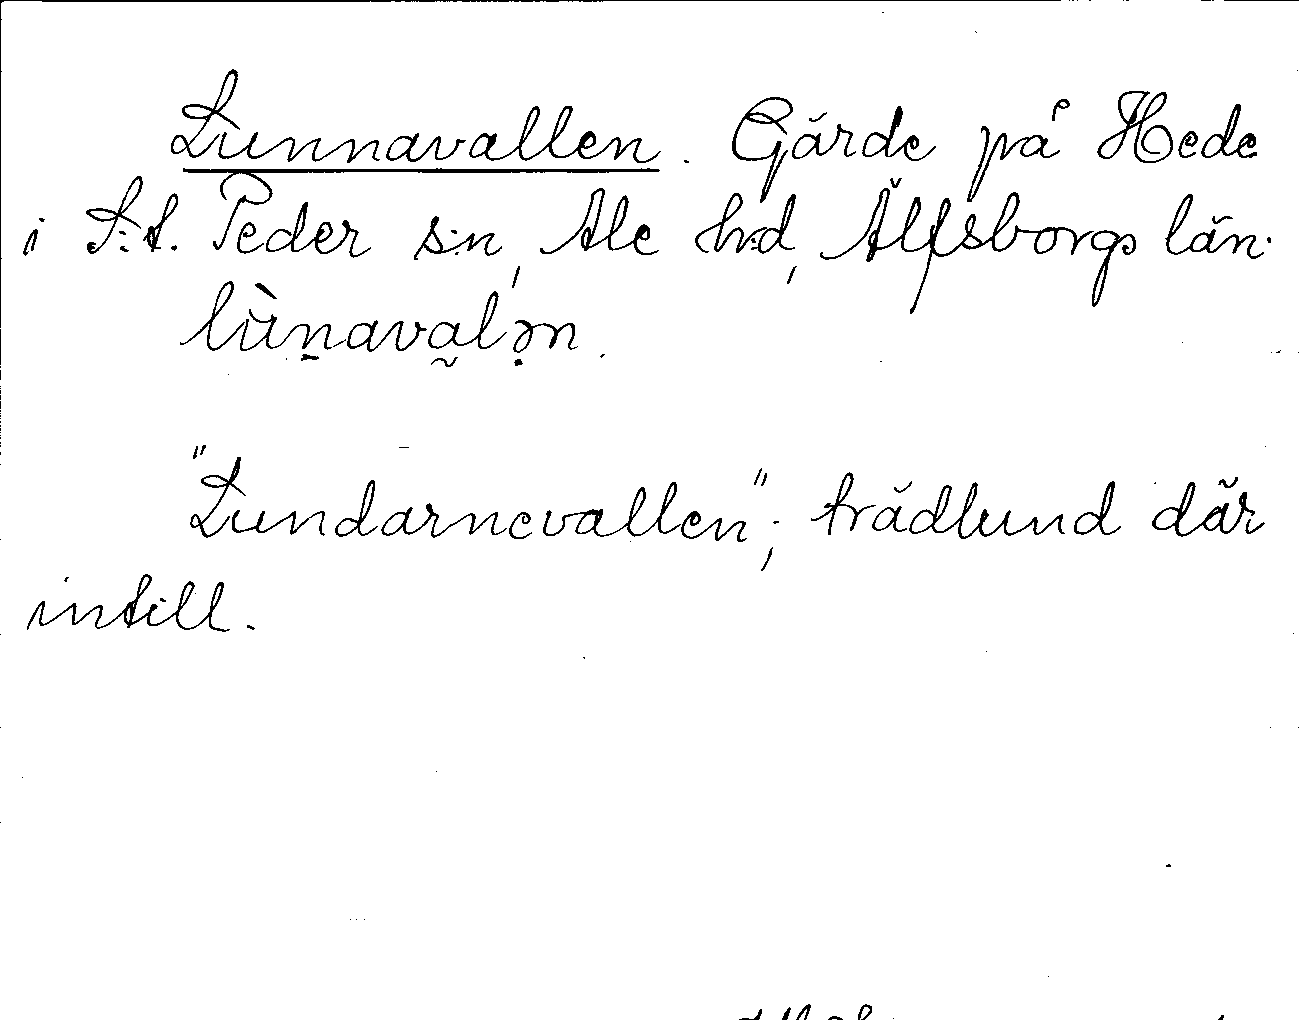 Lunnavallen. Gärde på Hede
i S:t. Peder s:n, Ale h:d, Älfsborgs län.
lùn̠ava̰lə̣n.
"Lundarnevallen"; trädlund där
intill.